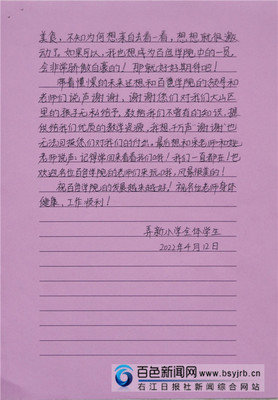 美食，不知为何想亲自去看一看，想想就很激
动了。如果可以，我也想成为百色学院中的一员，
会非常骄傲自豪的！那就好好期待吧！
带着懂憬的未来还想和百色学院的领导和
老师们说声谢谢，谢谢您们对我们大山区
里的孩子无私给予，教给我们不曾有的知识，提
供给我们优质的教学资源，我想千万声“谢谢”也
无法回报您们对我们的付出，最后想和来老师和她
老师说声：记得常回来看看我们哦！我们一直都在！也
欢迎各位百色学院的老师们来玩哦，风景很美的！
祝百色学院的发展越来越好！祝各位老师身体
健康，工作顺利！
弄勤小学全体学生
2022年4月12日
百色新闻网
www.bsyjrb.cn
右江日报社新闻综合网站